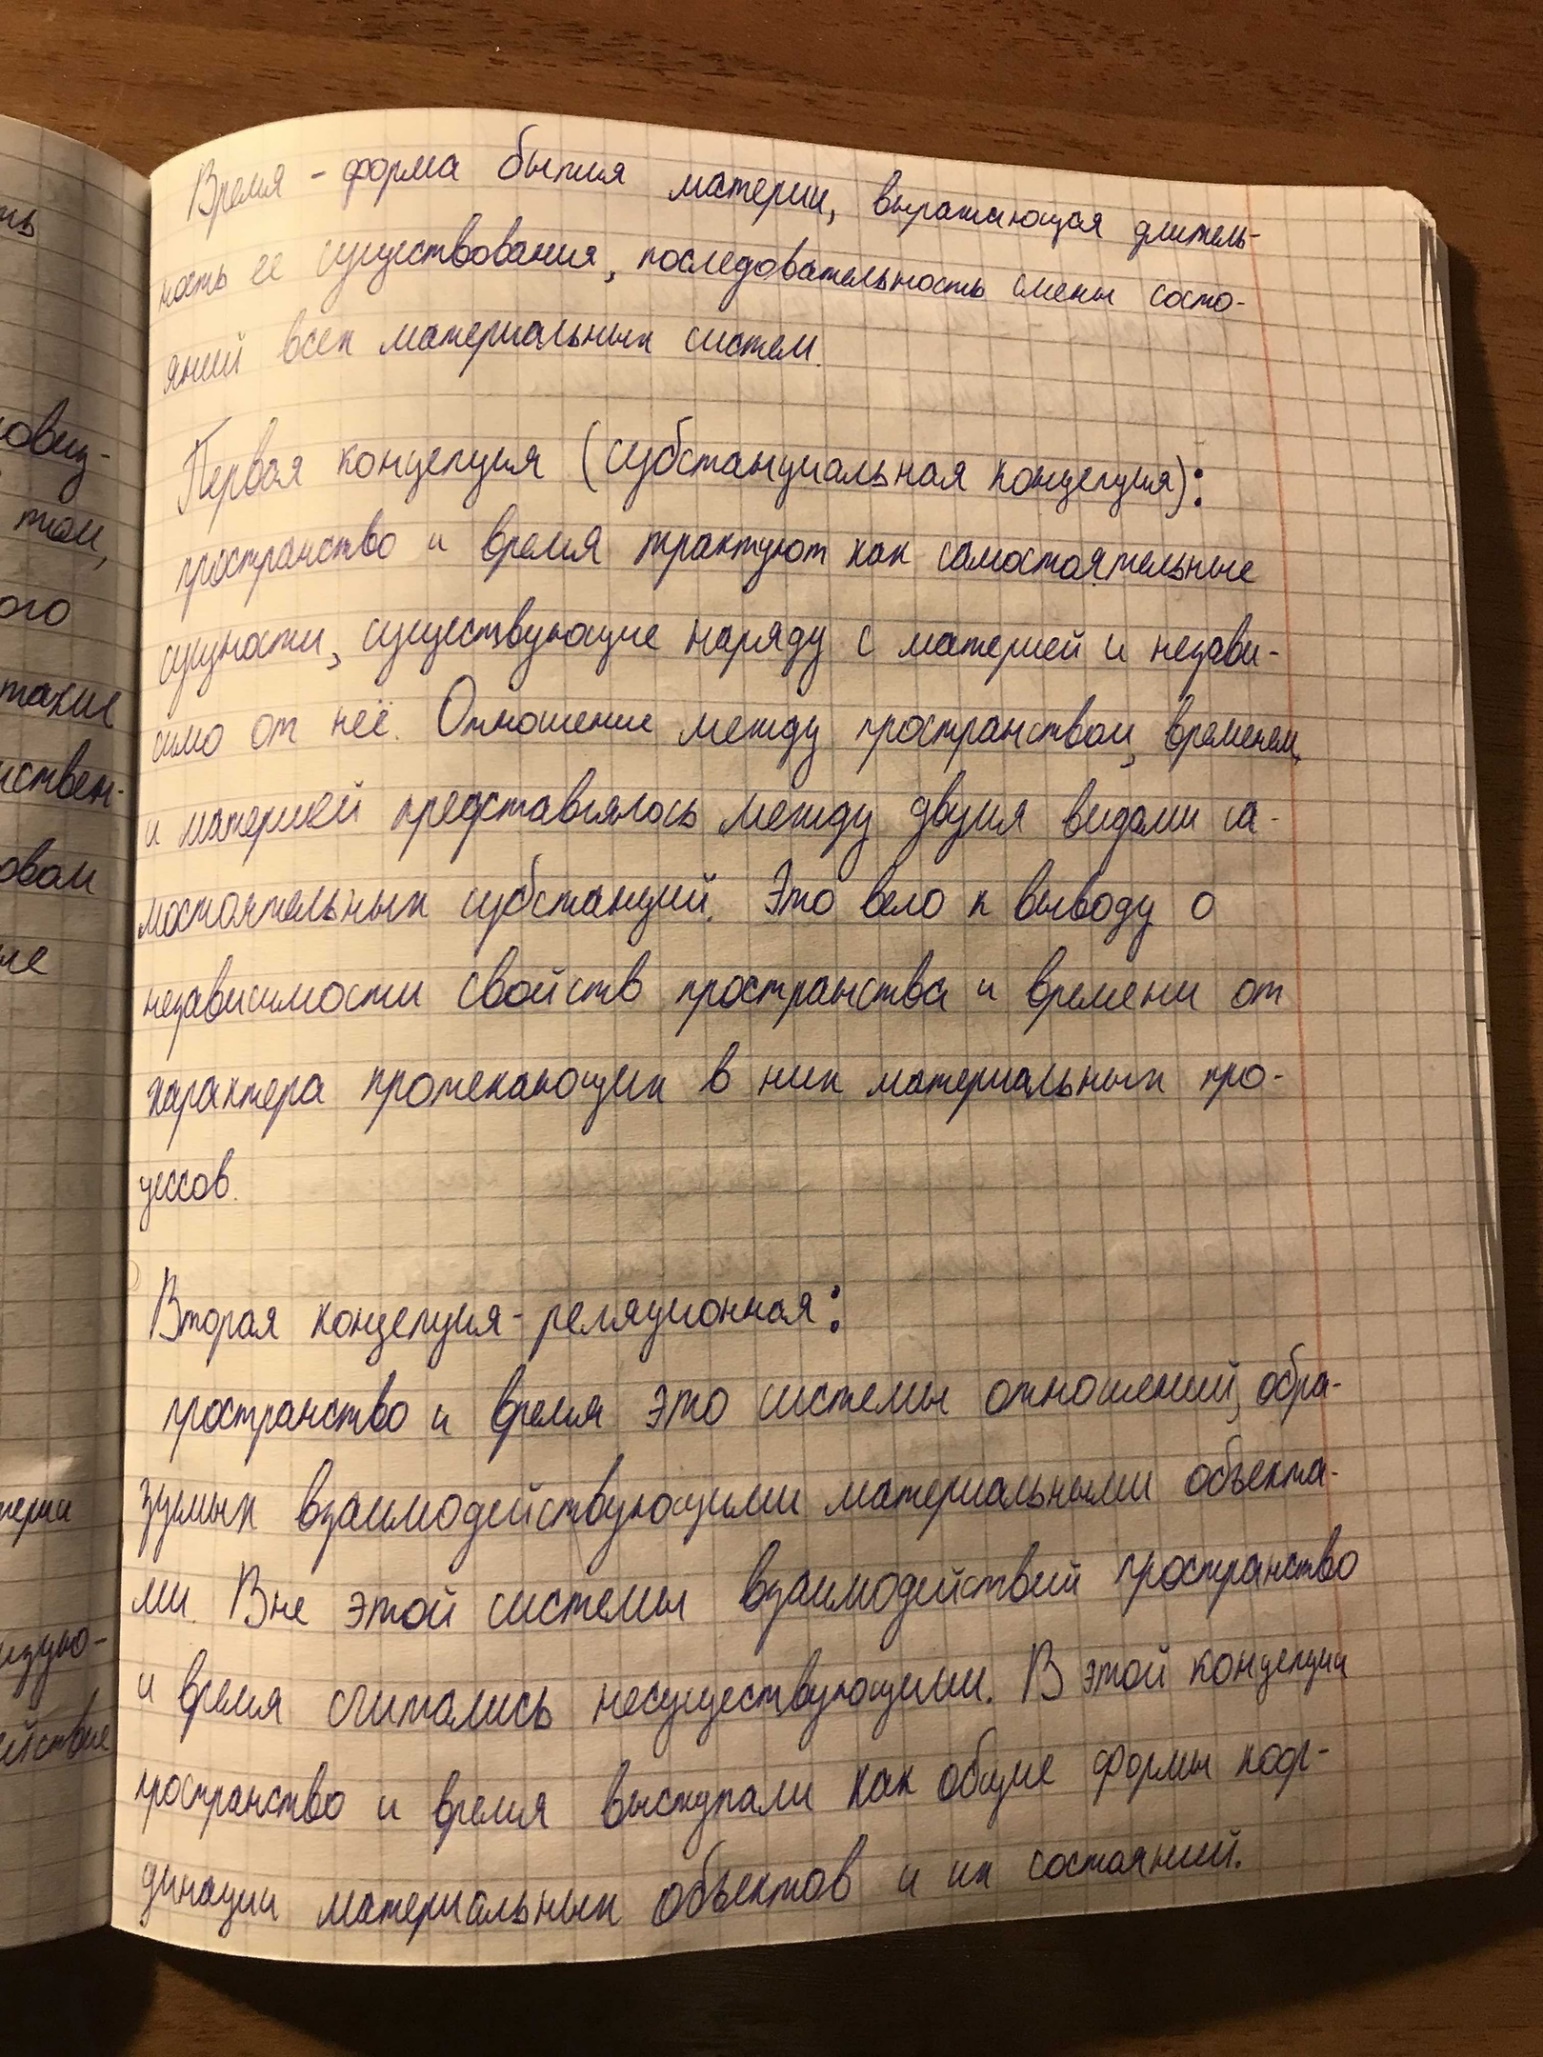 Время - форма бытия материи, выражающая длитель-
ность ее существования, последовательность смены состо-
яний всех материальных систем.
Первая концепция (субстанциальная концепция):
пространство и время трактуют как самостоятельные
сущности, существующие наряду с материей и незави-
симо от неё. Отношение между пространством, временем,
и материей представлялось между двумя видами са-
мостоятельных субстанций. Это вело к выводу о
независимости свойств пространства и времени от
характера протекающих в них материальных про-
цессов.
Вторая концепция - реляционная:
пространство и время это системы отношений, обра-
зуемых взаимодействующими материальными объекта-
ми. Вне этой системы взаимодействий пространство
и время считались несуществующими. В этой концепции
пространство и время выступали как общие формы коор-
динации материальных объектов и их состояний.